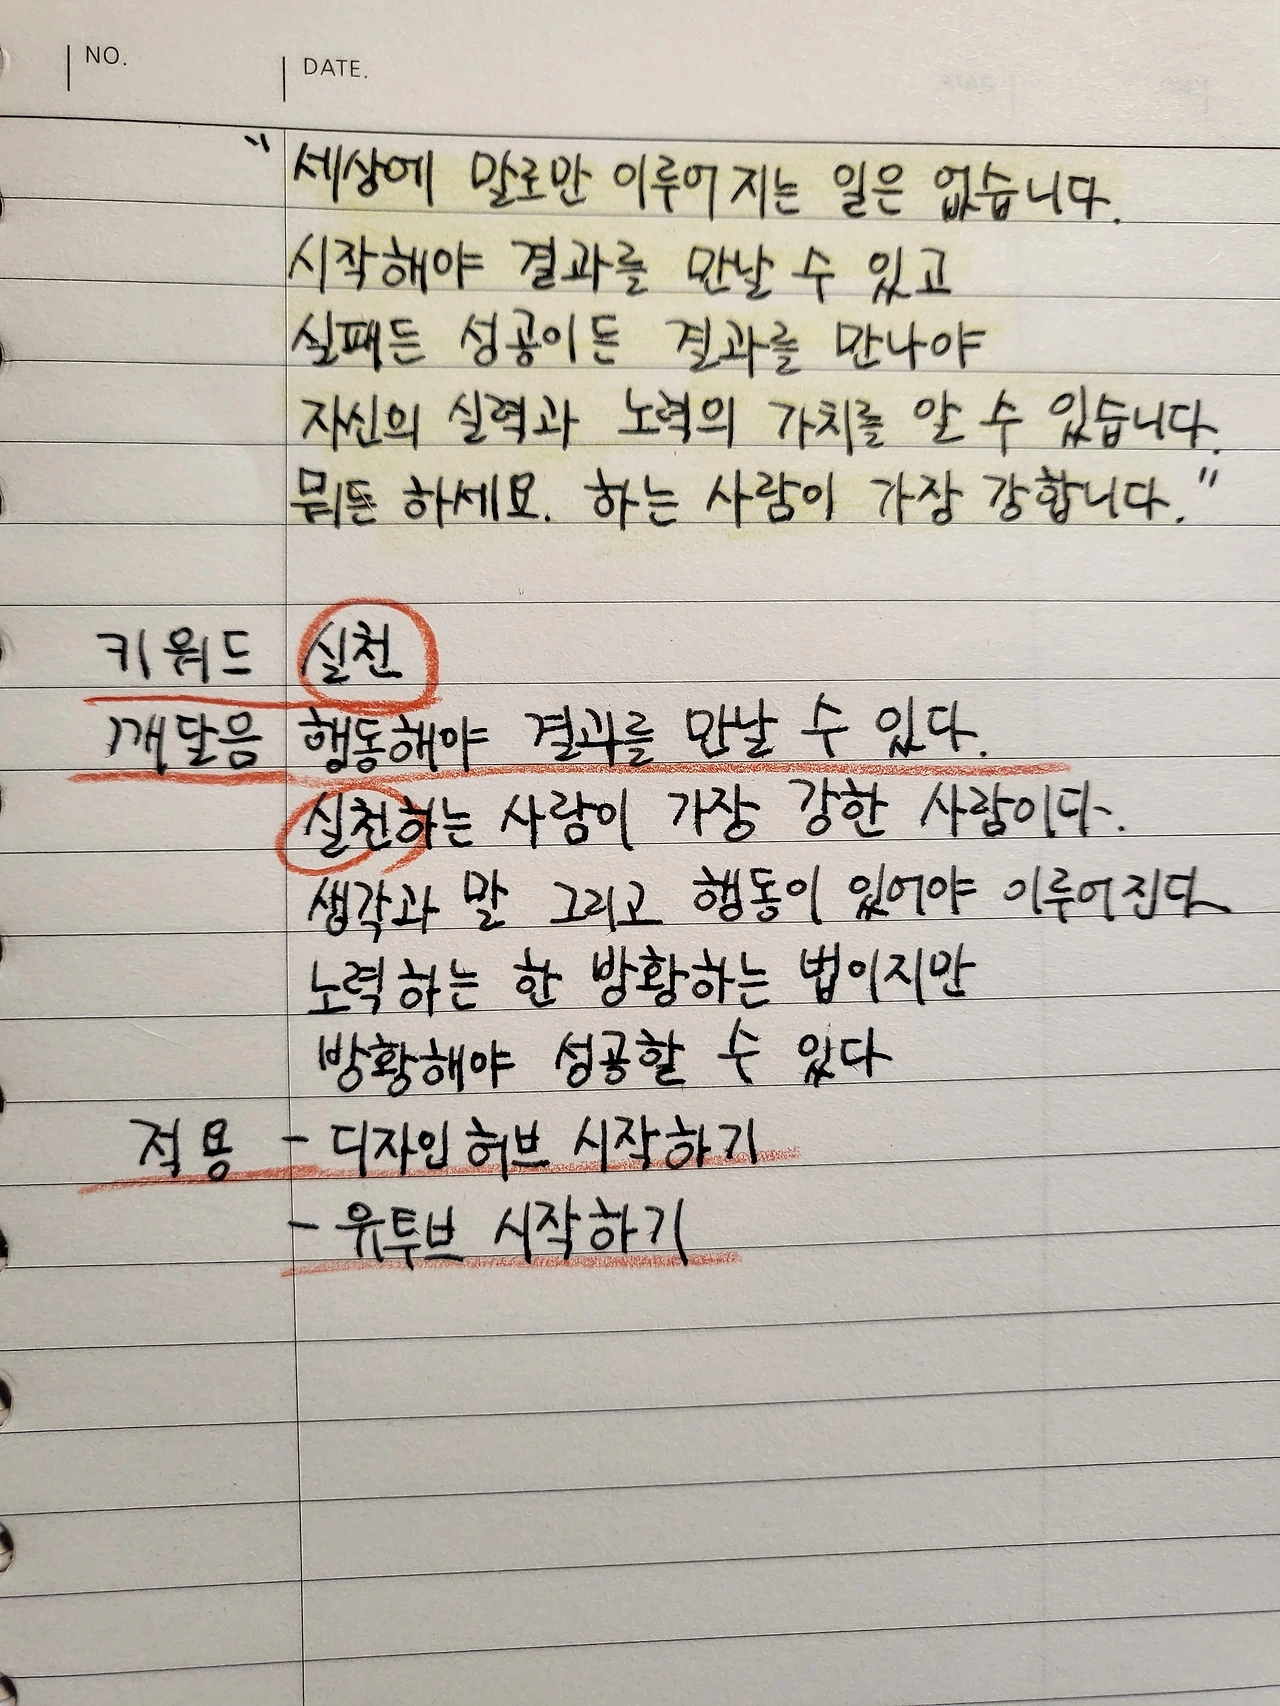 NO. DATE.
" 세상에 말로만 이루어지는 일은 없습니다.
시작해야 결과를 만날 수 있고
실패든 성공이든 결과를 만나야
자신의 실력과 노력의 가치를 알 수 있습니다.
뭐든 하세요. 하는 사람이 가장 강합니다."
키워드 실천
깨달음 행동해야 결과를 만날 수 있다.
실천하는 사람이 가장 강한 사람이다.
생각과 말 그리고 행동이 있어야 이루어진다
노력하는 한 방황하는 법이지만
방황해야 성공할 수 있다
적용 - 디자인허브 시작하기
- 유투브 시작하기